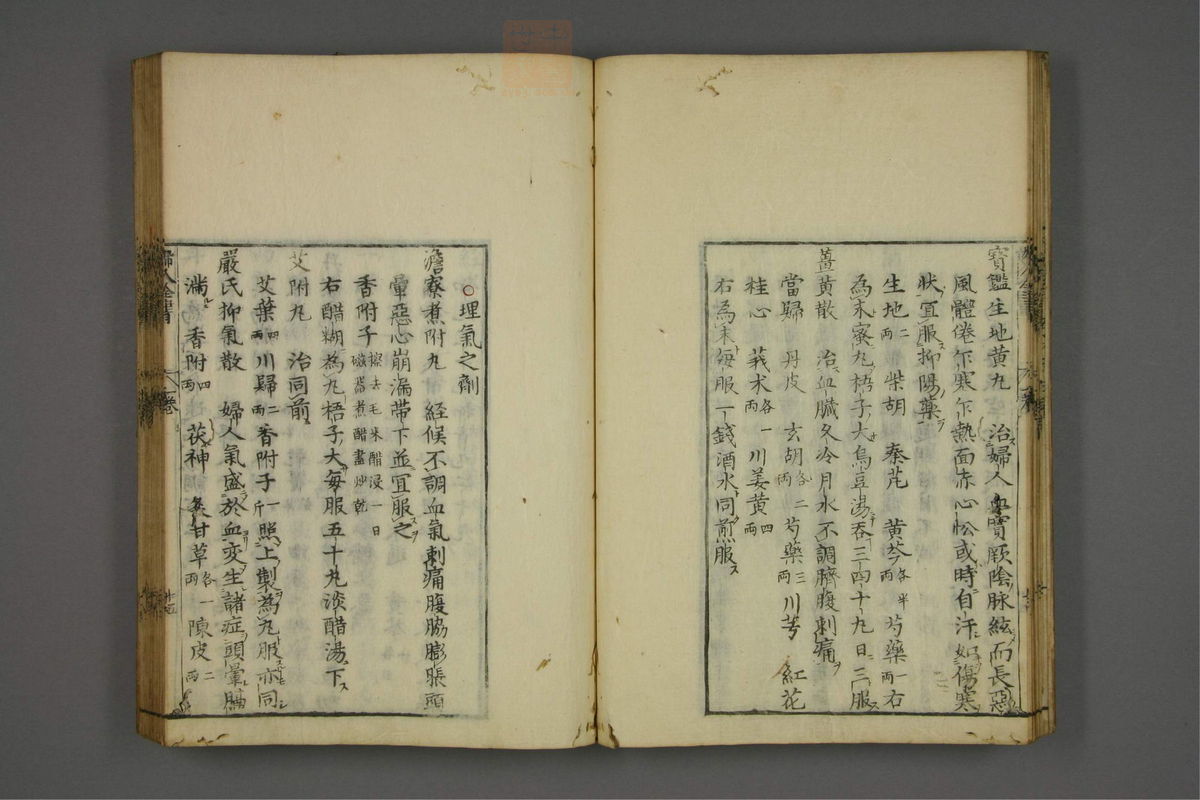 寶鑑生地黃丸 治婦人血實厥陰脉絃而長惡
風體倦乍寒乍熱面赤心忪或時自汗如傷寒
狀宜服抑陽藥
生地二兩 柴胡 秦芃 黃芩各半兩 芍藥一兩 右
為末蜜丸梧子大烏豆湯吞三四十丸日三服
薑黃散 治血臟久冷月水不調臍腹刺痛
當歸 丹皮 玄胡各二兩 芍藥三兩 川芎 紅花
桂心 莪术各一兩 川姜黃四兩
右為末每服一錢酒水同煎服
○理氣之劑
澹寮煮附丸 經候不調血氣刺痛腹脇膨脹頭
暈惡心崩漏帶下並宜服之
香附子擦去毛米醋浸一日磁器煮醋盡炒乾
右醋糊為丸梧子大每服五十丸淡醋湯下
艾附丸 治同前
艾葉四兩 川歸二兩 香附子一斤 照上製為丸服亦同
嚴氏抑氣散 婦人氣盛於血变生諸症頭暈膈
滿 香附四兩 茯神 炙甘草各一兩 陳皮二兩